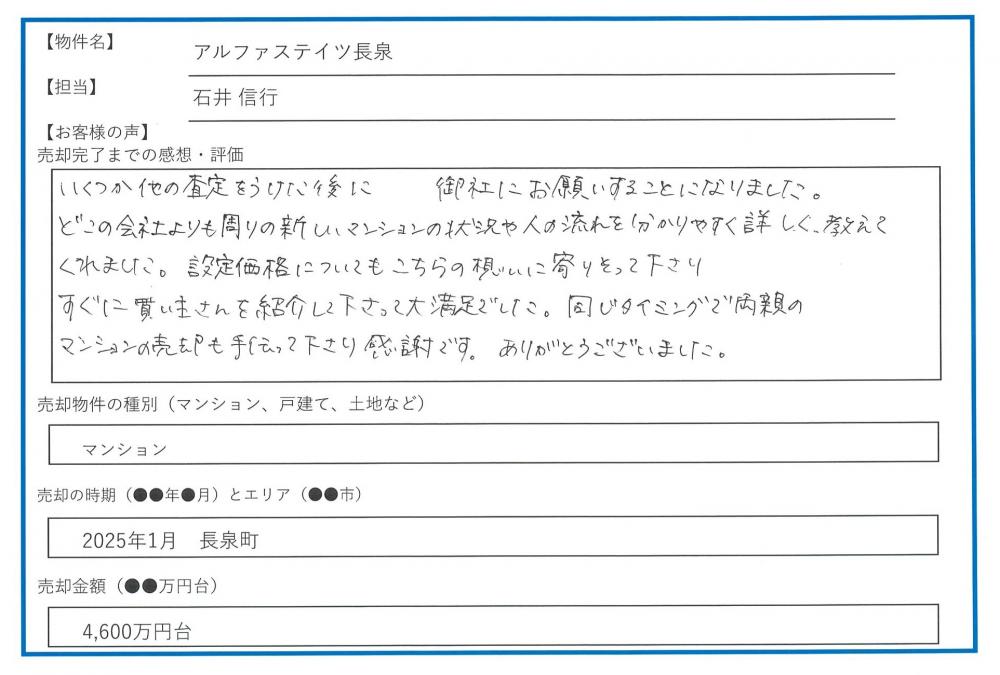 【物件名】 アルファステイツ長泉
【担当】 石井 信行
【お客様の声】
売却完了までの感想・評価
いくつか他の査定をうけた後に 御社にお願いすることになりました。
どこの会社よりも周りの新しいマンションの状況や人の流れを分かりやすく詳しく、教えて
くれました。設定価格についてもこちらの想いに寄りそって下さり
すぐに買い主さんを紹介して下さって大満足でした。同じタイミングで両親の
マンションの売却も手伝って下さり感謝です。ありがとうございました。
売却物件の種別（マンション、戸建て、土地など）
マンション
売却の時期（●●年●月）とエリア（●●市）
2025年1月 長泉町
売却金額（●●万円台）
4,600万円台